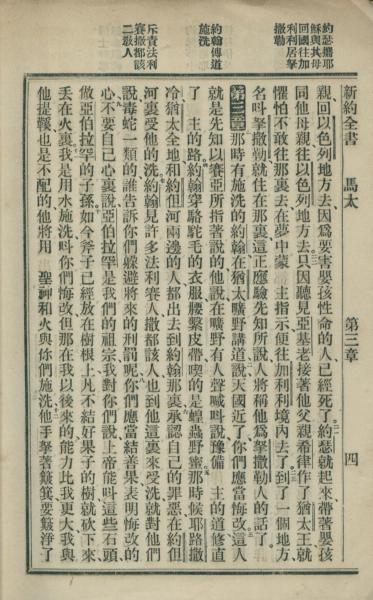 約瑟攜耶
穌與其母
回國往加
利利居拏
撒勒
約翰傳道
施洗
斥責法利
賽撒都該
二敎人
新約全書 馬太 第三章 四
親回以色列地方去因爲要害嬰孩性命的人已經死了約瑟就起來帶著嬰孩
同他母親往以色列地方去只因聽見亞基老接著他父親希律作了猶太王就
懼怕不敢往那裏去在夢中蒙 主指示便往加利利境內去了到了一個地方
名呌拏撒勒就住在那裏這正應驗先知所說人將稱他爲拏撒勒人的話了
第三章那時有施洗的約翰在猶太曠野講道說天國近了你們應當悔改這人
就是先知以賽亞所指著說的他說在曠野有人聲喊呌說豫備 主的道修直
了 主的路約翰穿駱駝毛的衣服腰繫皮帶喫的是蝗蟲野蜜那時候耶路撒
冷猶太全地和約但河兩邊的人都出去到約翰那裏承認自己的罪惡在約但
河裏受他的洗約翰見許多法利賽人撒都該人也到他這裏來受洗就對他們
說毒蛇一類的誰告訴你們躱避將來的刑罰呢你們應當結善果表明悔改的
心不要自己心裏說亞伯拉罕是我們的祖宗我對你們說上帝能呌這些石頭
做亞伯拉罕的子孫如今斧子已經放在樹根上凡不結好果子的樹就砍下來
丟在火裏我是用水施洗呌你們悔改但那在我以後來的能力比我更大我與
他提鞵也是不配的他將用 聖神和火與你們施洗他手拏著簸箕要簸淨了